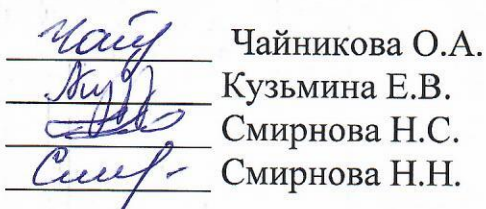 Чайникова О.А.
Кузьмина Е.В.
Смирнова Н.С.
Смирнова Н.Н.